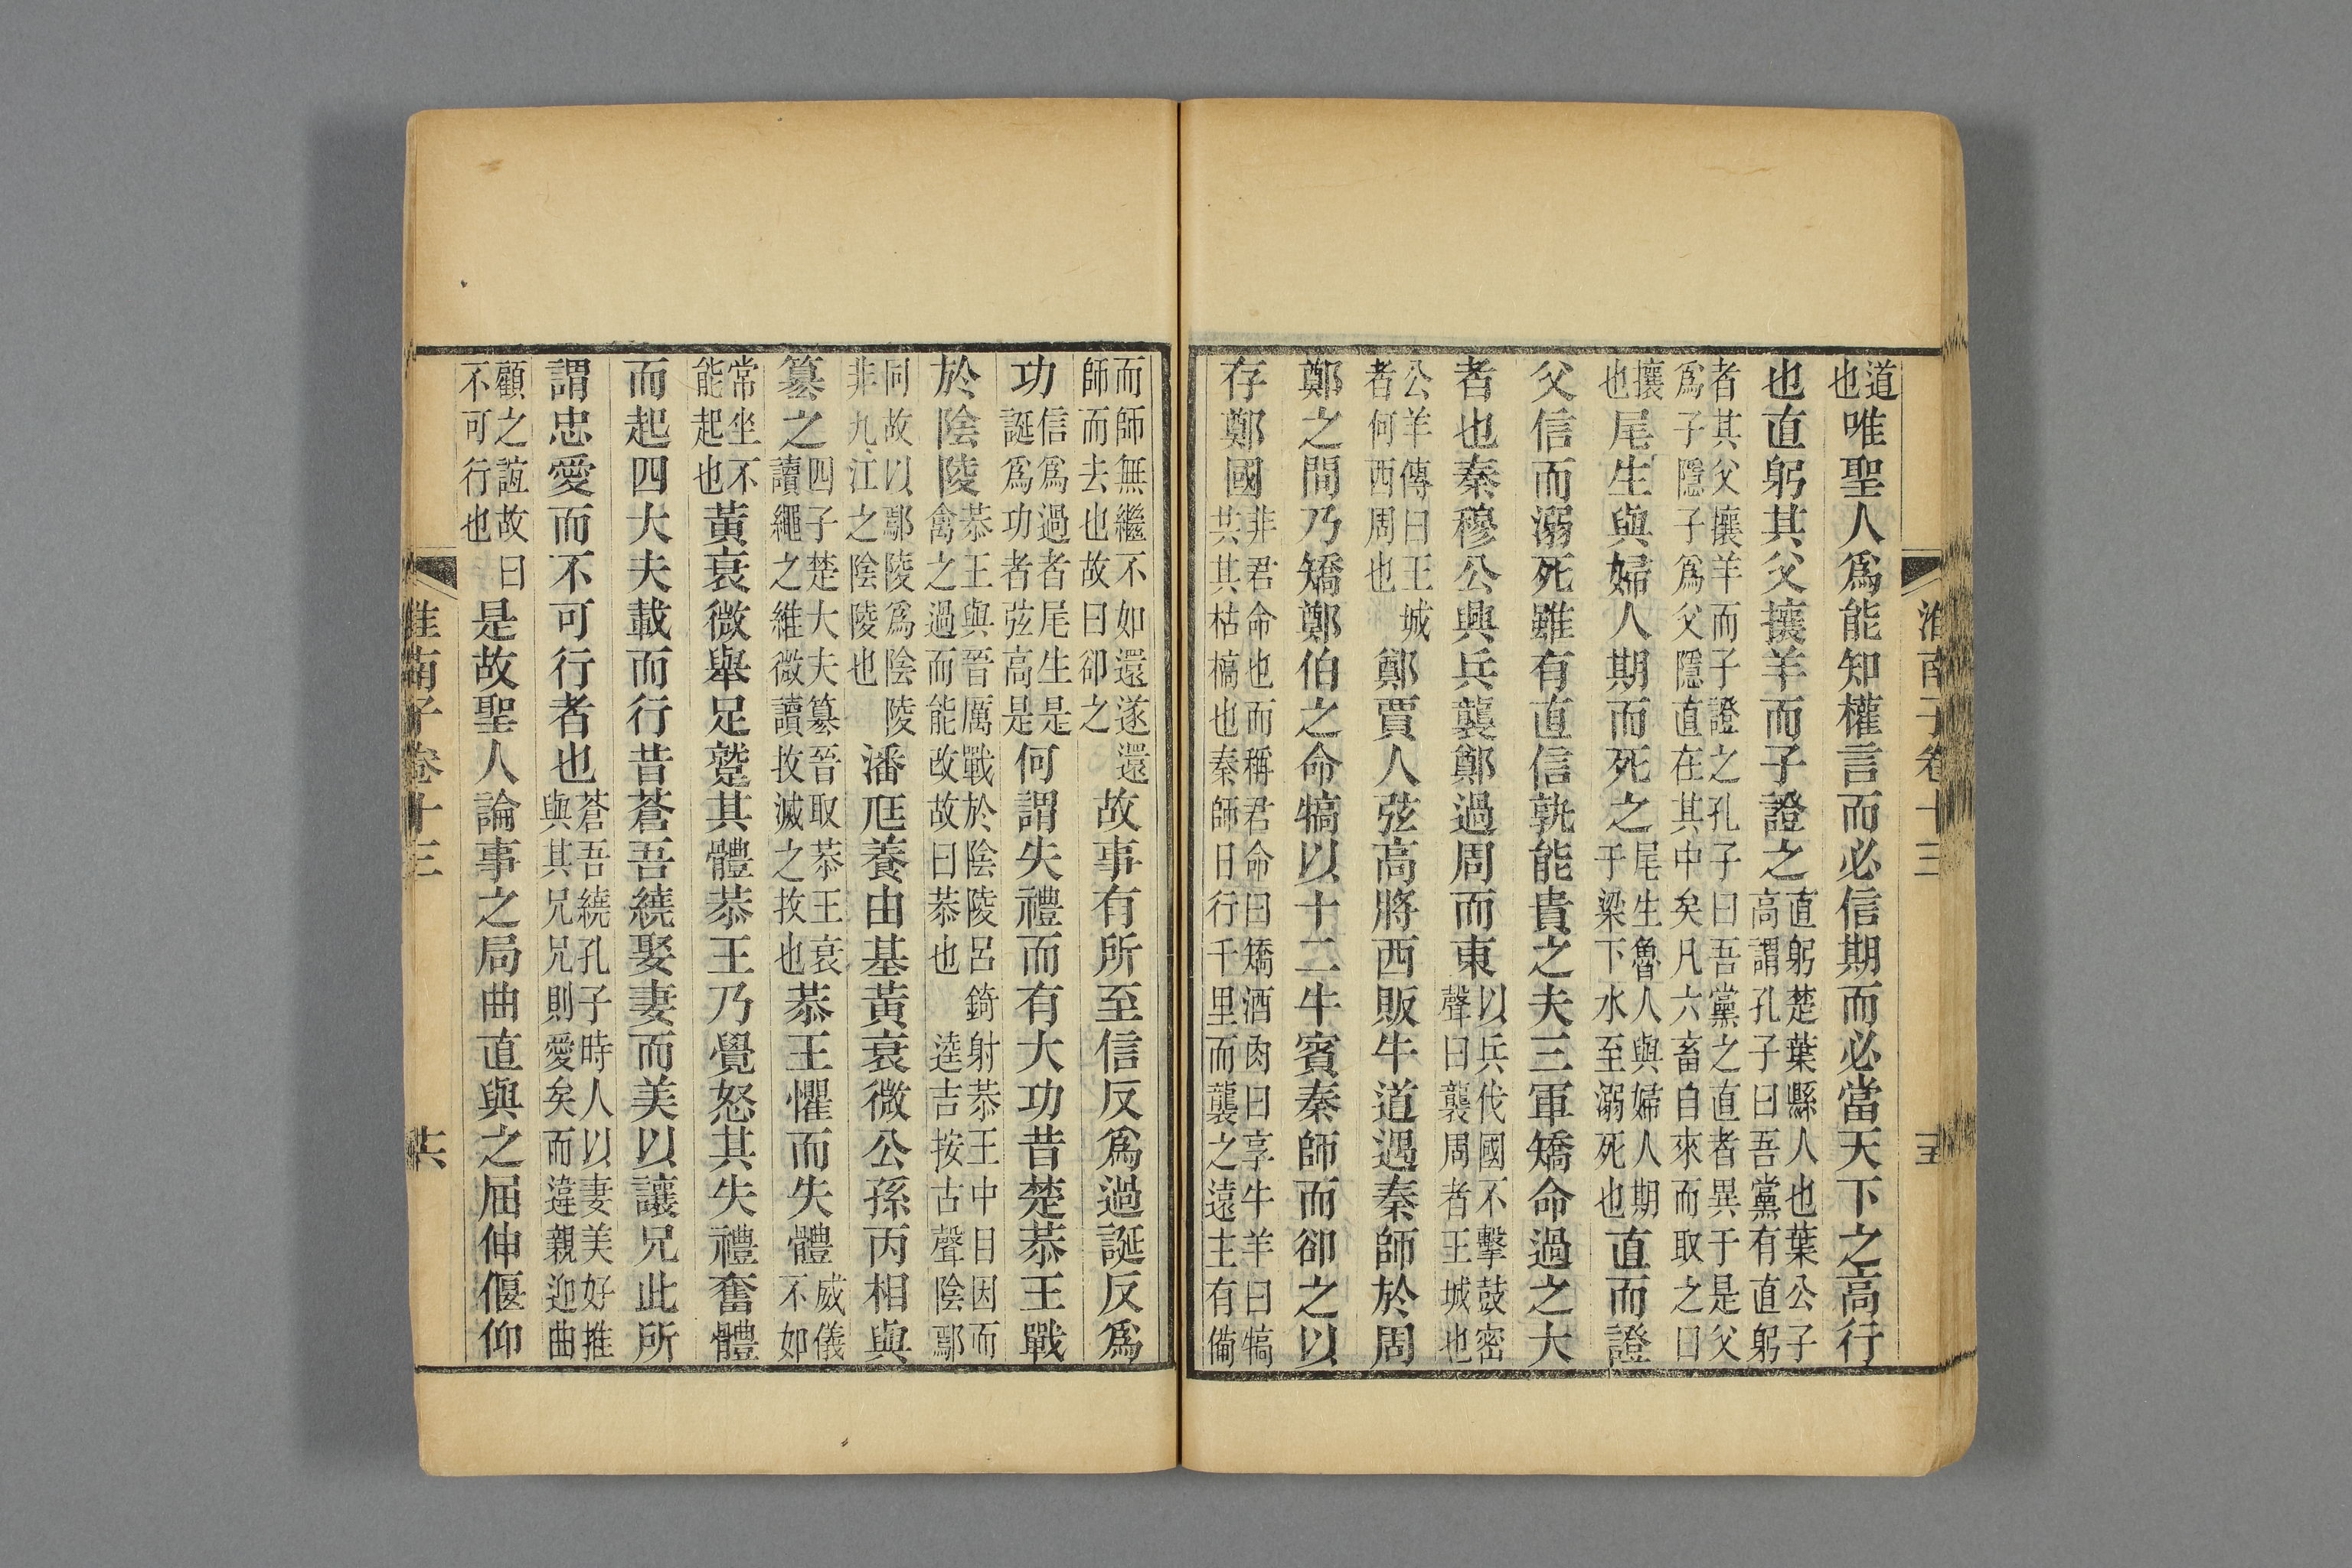 淮南子卷十三
道也唯聖人爲能知權言而必信期而必當天下之高行
也直躬其父攘羊而子證之直躬楚葉縣人也葉公子高謂孔子曰吾黨有直躬
者其父攘羊而子證之孔子曰吾黨之直者異于是父爲子隱子爲父隱直在其中矣凡六畜自來而取之曰
攘也尾生與婦人期而死之尾生魯人與婦人期于梁下水至溺死也直而證
父信而溺死雖有直信孰能貴之夫三軍矯命過之大
者也秦穆公興兵襲鄭過周而東以兵伐國不擊鼓密聲曰襲周者王城也
公羊傳曰王城者何西周也鄭賈人弦高將西販牛道遇秦師於周
鄭之間乃矯鄭伯之命犒以十二牛賓秦師而卻之以
存鄭國非君命也而稱君命曰矯酒肉曰享牛羊曰犒共其枯槁也秦師日行千里而襲之遠主有備
而師無繼不如還遂還師而去也故曰卻之故事有所至信反爲過誕反爲
功信爲過者尾生是誕爲功者弦高是何謂失禮而有大功昔楚恭王戰
於陰陵恭王與晉厲戰於陰陵呂錡射恭王中目因而禽之過而能改故曰恭也逵吉按古聲陰鄢
同故以鄢陵爲陰陵非九江之陰陵也潘尫養由基黃衰微公孫丙相與
篡之四子楚大夫篡晉取恭王衰讀繩之維微讀抆滅之抆也恭王懼而失體威儀不如
常坐不能起也黃衰微舉足蹵其體恭王乃覺怒其失禮奮體
而起四大夫載而行昔蒼吾繞娶妻而美以讓兄此所
謂忠愛而不可行者也蒼吾繞孔子時人以妻美好推與其兄兄則愛矣而違親迎曲
顧之誼故曰不可行也是故聖人論事之局曲直與之屈伸偃仰
淮南子卷十三